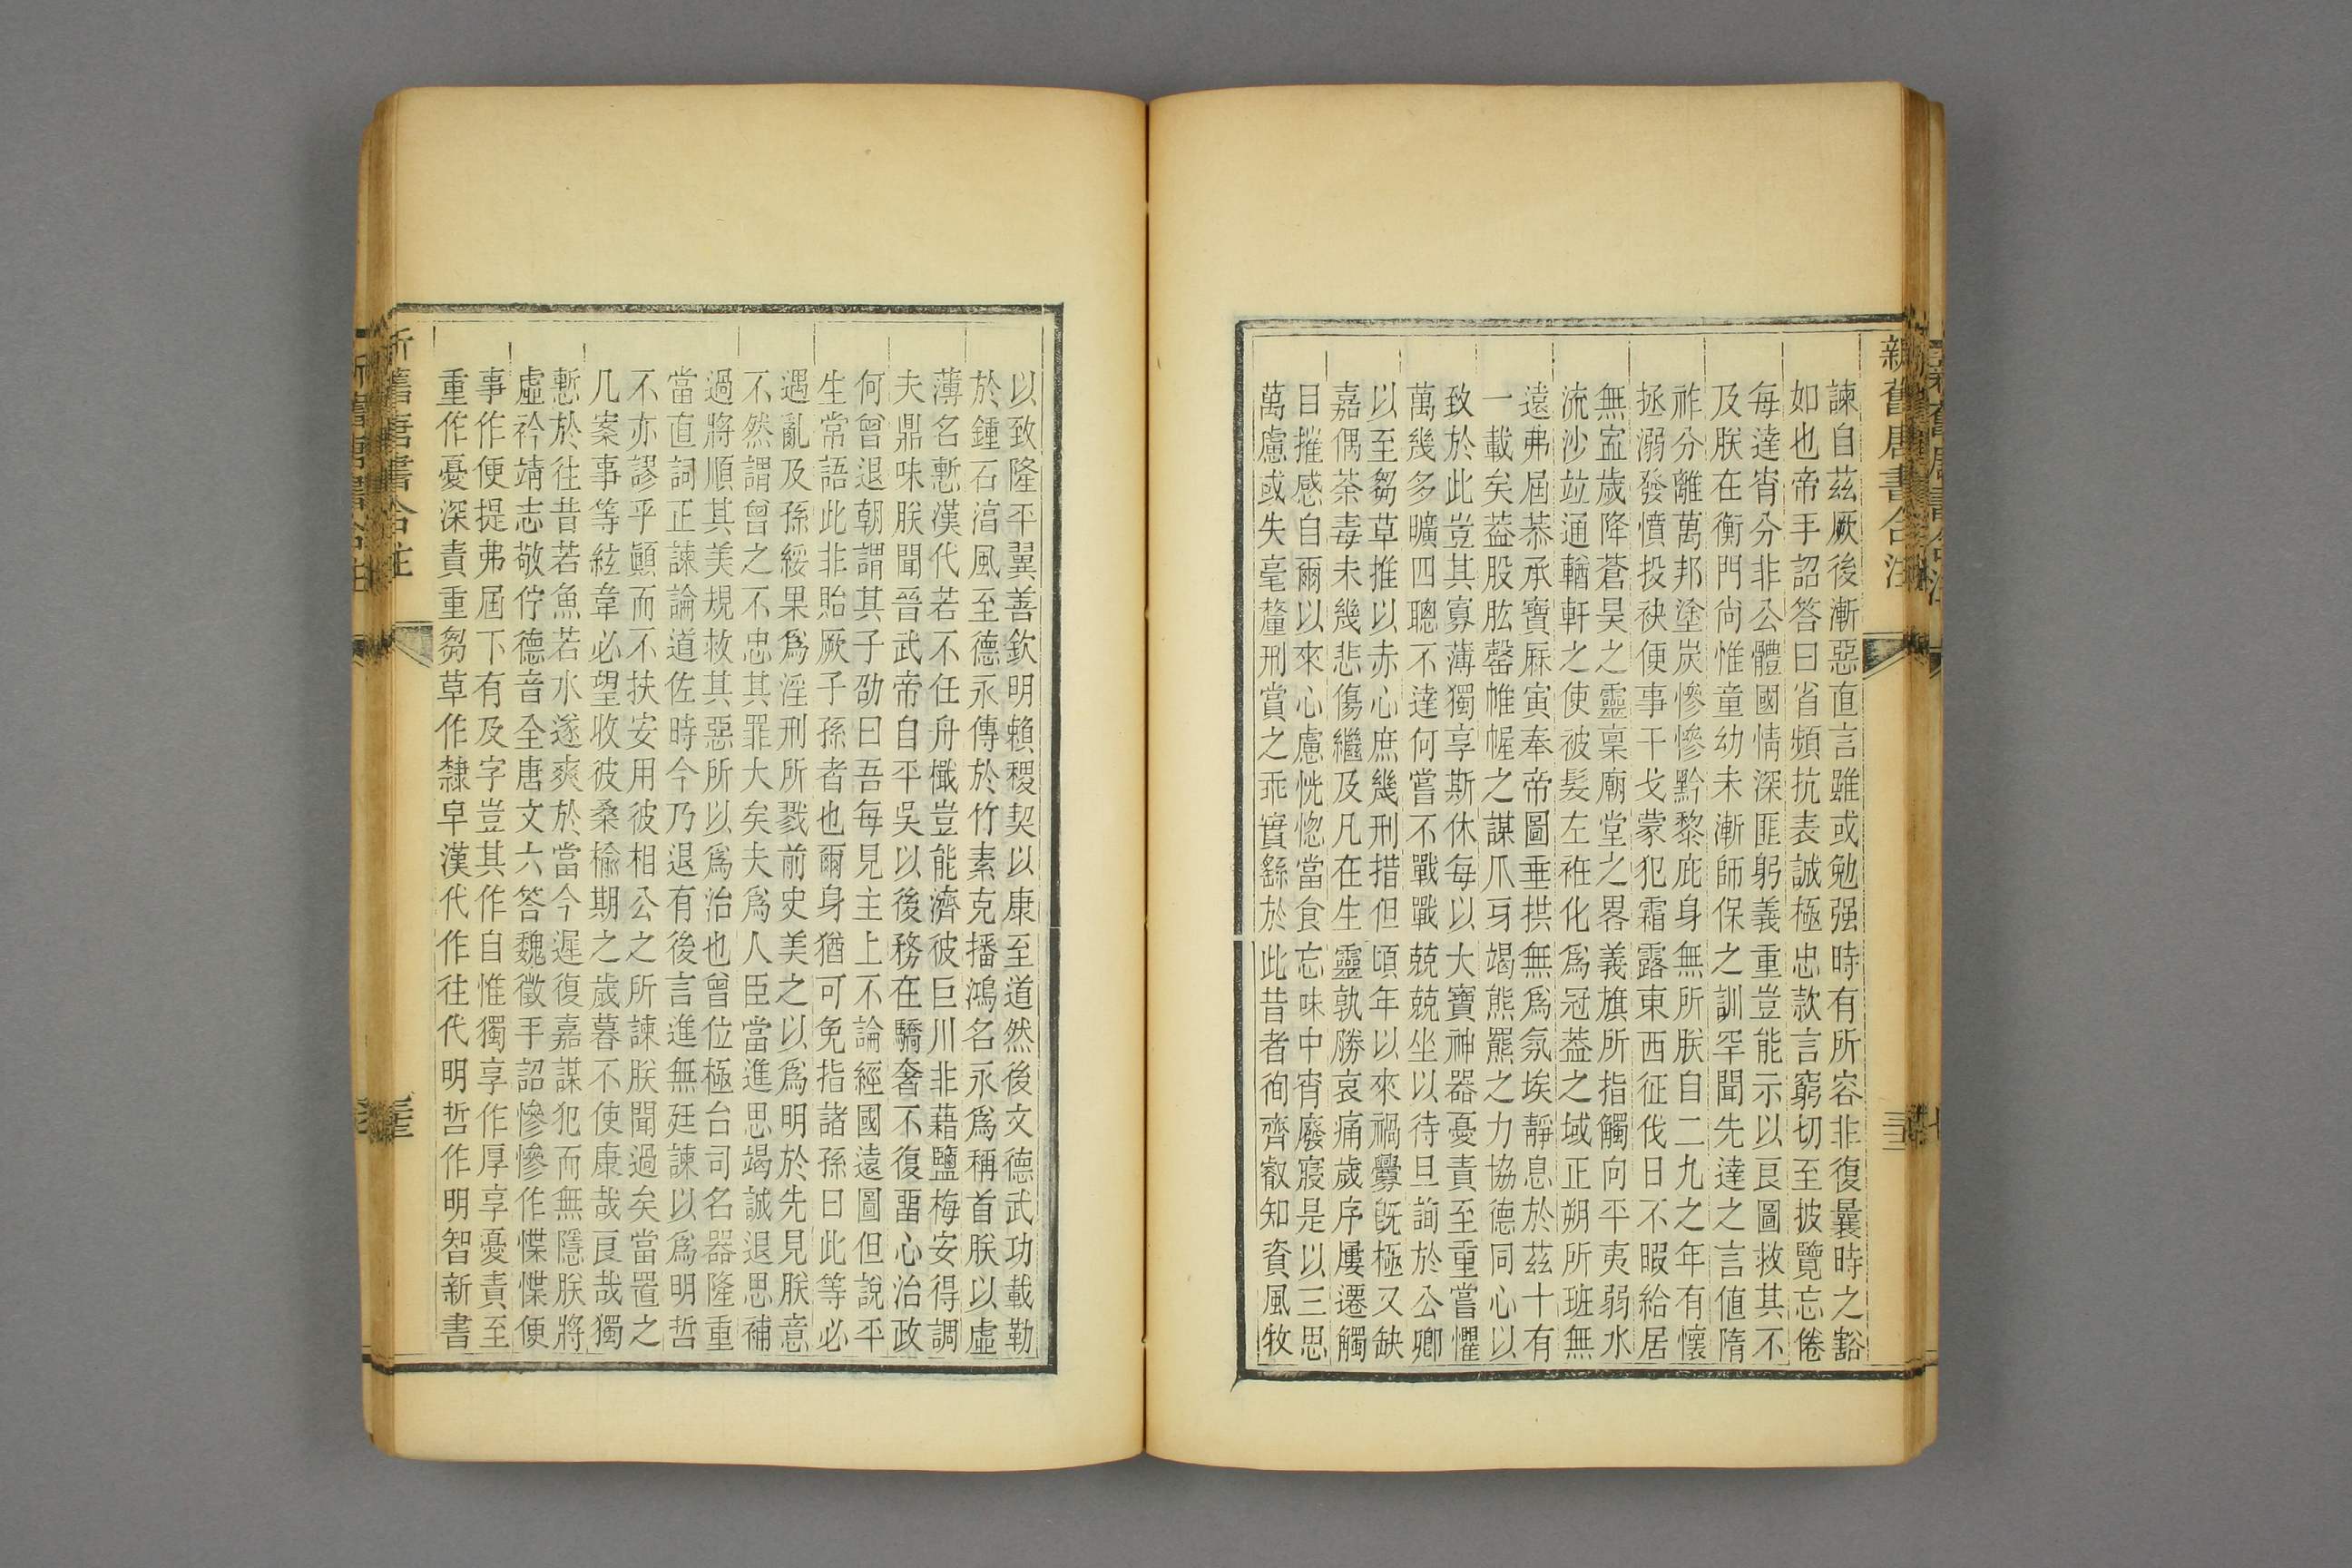 新舊唐書合注
三二
諫自茲厥後漸惡直言雖或勉强時有所容非復曩時之豁
如也帝手詔答曰省頻抗表誠極忠款言窮切至披覽忘倦
每達宵分非公體國情深匪躬義重豈能示以良圖救其不
及朕在衡門尚惟童幼未漸師保之訓罕聞先達之言值隋
祚分離萬邦塗炭慘慘黔黎庇身無所朕自二九之年有懷
拯溺發憤投袂便事干戈蒙犯霜露東西征伐日不暇給居
無寍歲降蒼昊之靈稟廟堂之畧義旗所指觸向平夷弱水
流沙竝通輶軒之使被髮左袵化爲冠葢之域正朔所班無
遠弗屆恭承寶厤寅奉帝圖垂拱無爲氛埃靜息於茲十有
一載矣葢股肱罄帷幄之謀爪牙竭熊羆之力協德同心以
致於此豈其寡薄獨享斯休每以大寶神器憂責至重嘗懼
萬幾多曠四聰不達何嘗不戰戰兢兢坐以待旦詢於公卿
以至芻草推以赤心庶幾刑措但頃年以來禍釁旣極又缺
嘉偶荼毒未幾悲傷繼及凡在生靈孰勝哀痛歲序屢遷觸
目摧感自爾以來心慮恍惚當食忘味中宵廢寢是以三思
萬慮或失毫釐刑賞之乖實繇於此昔者徇齊叡知資風牧
以致隆平翼善欽明賴稷契以康至道然後文德武功載勒
於鍾石滈風至德永傳於竹素克播鴻名永爲稱首朕以虛
薄名慙漢代若不任舟檝豈能濟彼巨川非藉鹽梅安得調
夫鼎味朕聞晉武帝自平吳以後務在驕奢不復畱心治政
何曾退朝謂其子劭曰吾每見主上不論經國遠圖但說平
生常語此非貽厥子孫者也爾身猶可免指諸孫曰此等必
遇亂及孫綏果爲淫刑所戮前史美之以爲明於先見朕意
不然謂曾之不忠其罪大矣夫爲人臣當進思竭誠退思補
過將順其美規救其惡所以爲治也曾位極台司名器隆重
當直詞正諫論道佐時今乃退有後言進無廷諫以爲明哲
不亦謬乎顚而不扶安用彼相公之所諫朕聞過矣當置之
几案事等絃韋必望收彼桑楡期之歲暮不使康哉良哉獨
慙於往昔若魚若水遂爽於當今遲復嘉謀犯而無隱朕將
虛衿靖志敬佇德音全唐文六答魏徵手詔慘慘作惵惵便
事作便提弗屆下有及字豈其作自惟獨享作厚享憂責至
重作憂深責重芻草作隸皁漢代作往代明哲作明智新書
舊唐書合注